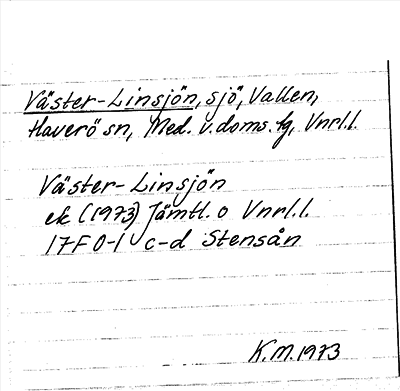 Väster-Linsjön, sjö, Vallen,
Haverö sn, Med. v. doms. fg, Vnrl.l.
Väster-Linsjön
ek (1973) Jämtl. o Vnrl.l.
17F 0-1 c-d Stensån
K.M. 1973